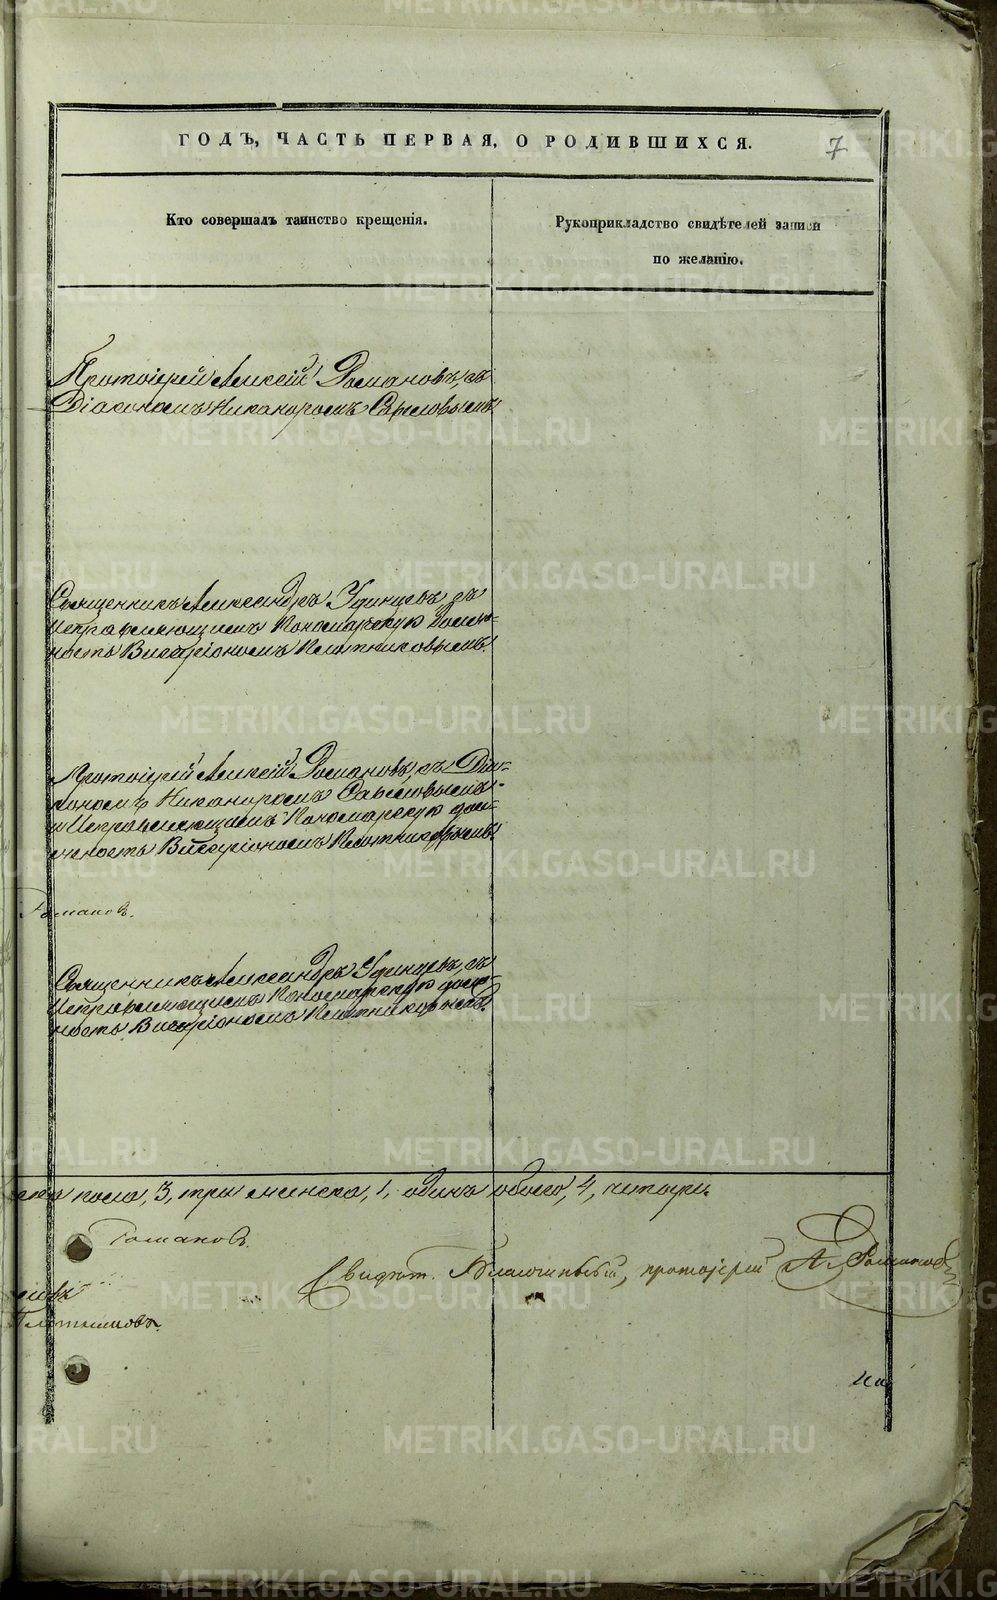 ГОДЪ, ЧАСТЬ ПЕРВАЯ, О РОДИВШИХСЯ.
7
Кто совершалъ таинство крещенія.
Рукоприкладство свидѣтелей записи
по желанію.
Протоіерей Алексій Романовъ, съ
Діакономъ Никаноромъ Сарыловымъ
Священникъ Александръ Удинцевъ съ
Исправляющимъ Пономарскую долж-
ность Виссаріономъ Плотниковымъ.
Протоіерей Алексій Романовъ, съ Діа-
кономъ Никаноромъ
и Исправляющимъ Пономарскую дол-
жность Виссаріономъ Плотниковымъ.
Романовъ.
Священникъ Александръ Удинцевъ, съ
Исправляющимъ Пономарскую долж-
ность Виссаріономъ Плотниковымъ.
пола, 3, три женска, 1, одинъ обоего, 4, четыре.
Романовъ.
Свидѣт. Благочинный, протоіерей А. Романовъ
Плотниковъ.
METRIKI.GASO-URAL.RU